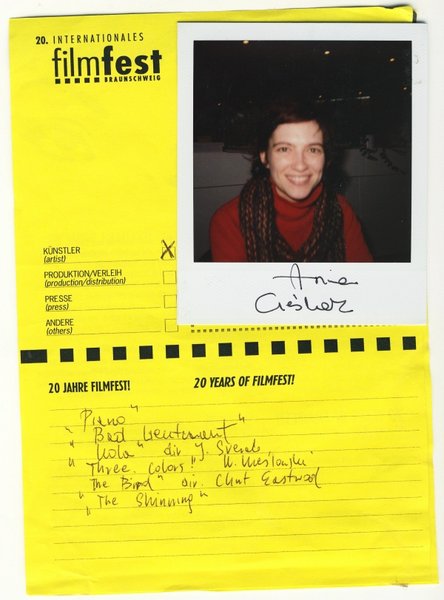 20. INTERNATIONALES
filmfest
BRAUNSCHWEIG
KÜNSTLER
(artist)
X
PRODUKTION/VERLEIH
(production/distribution)
PRESSE
(press)
ANDERE
(others)
20 JAHRE FILMFEST!
20 YEARS OF FILMFEST!
"Piano"
"Bad Lieutenant"
"Kola" dir J. Sverak
"Three Colors" K. Kieślowski
"The Bird" dir. Clint Eastwood
"The Shinning"